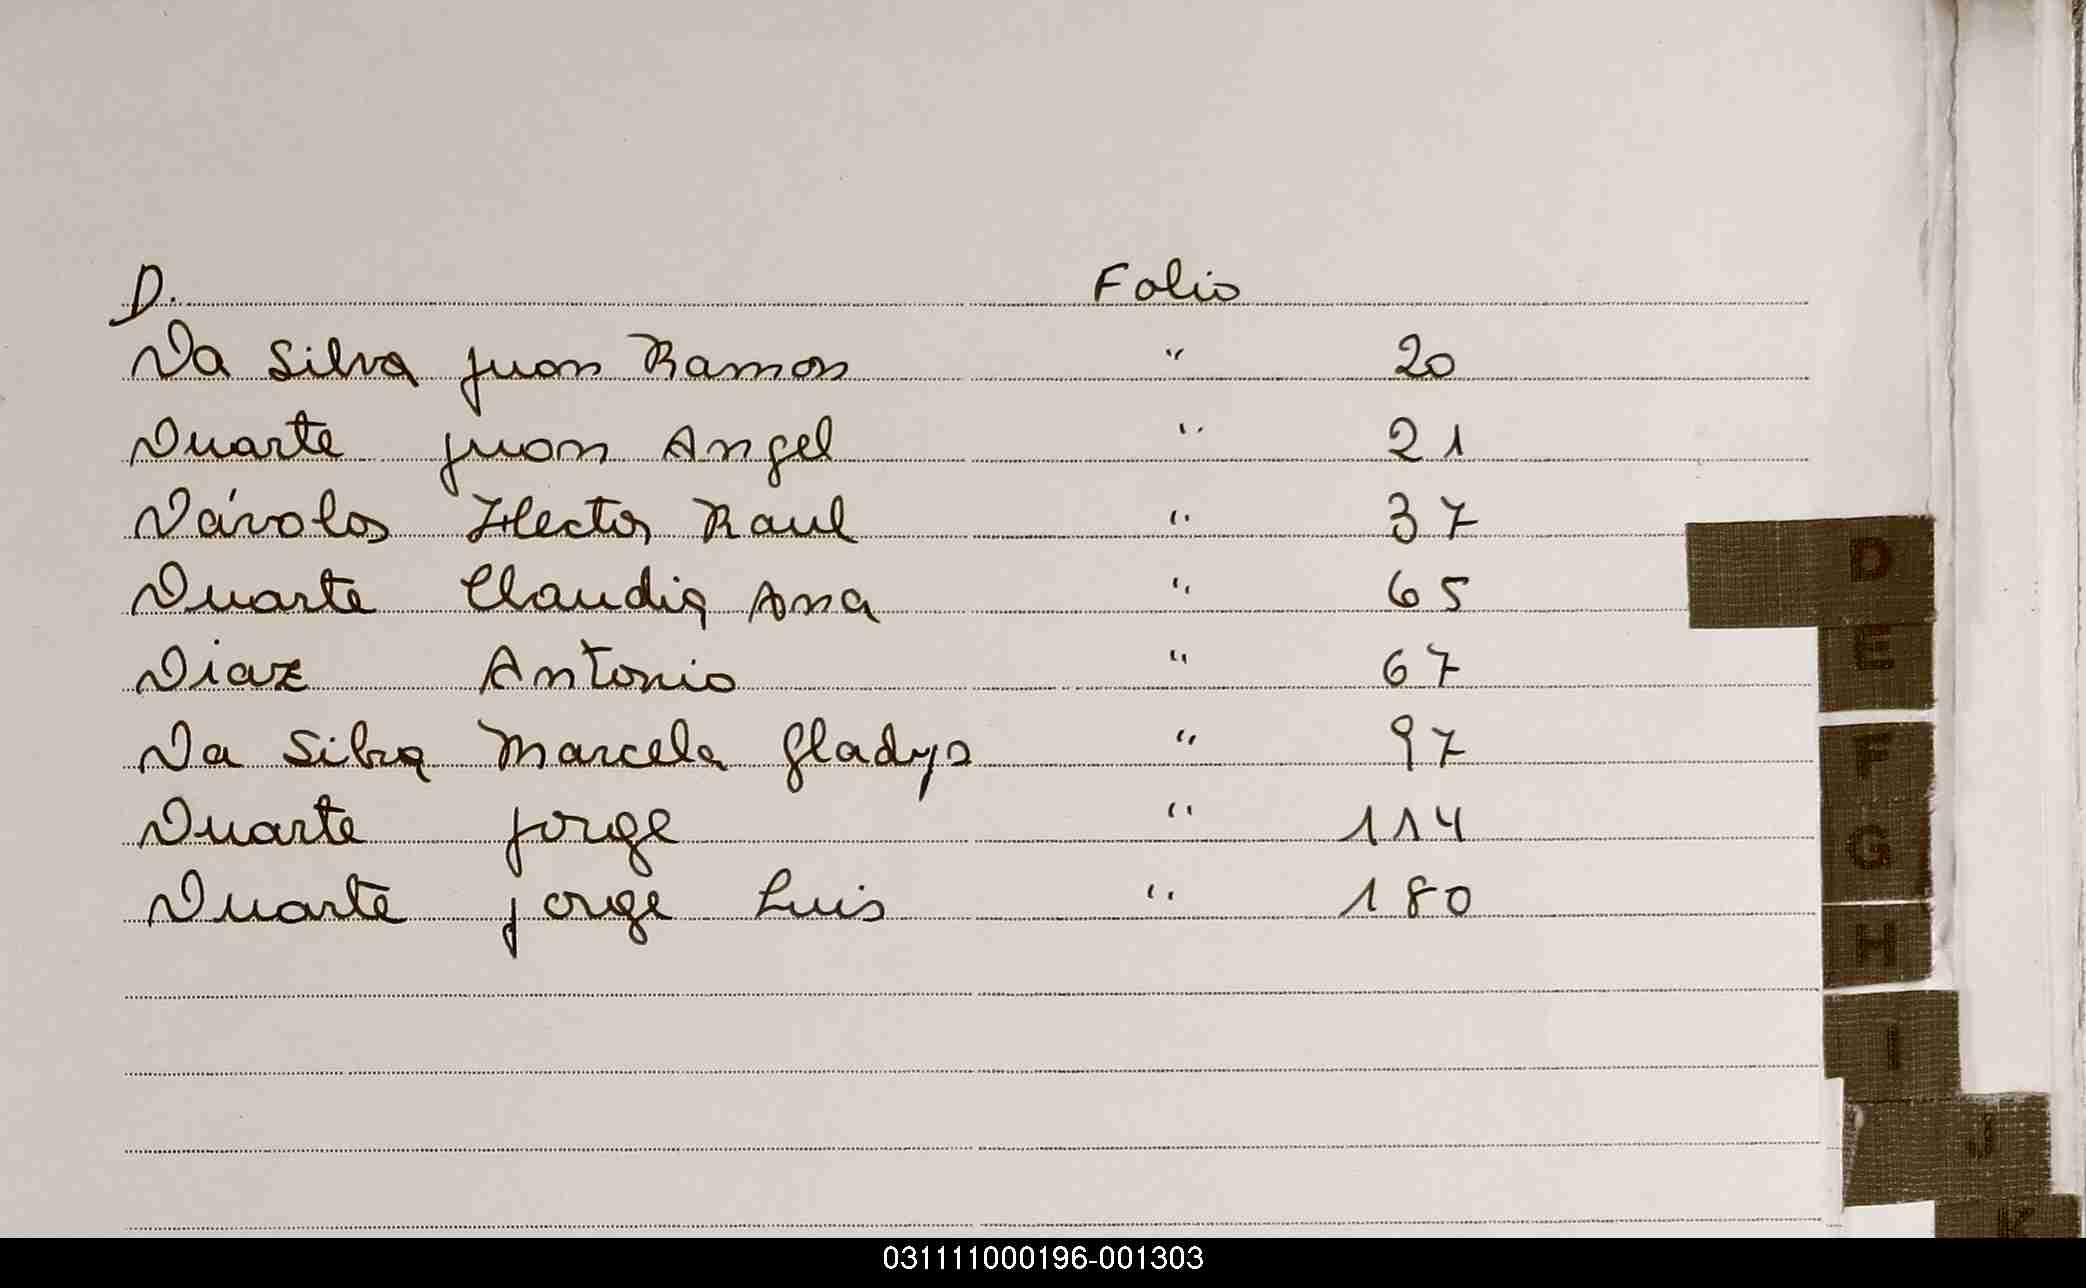 D. Folio
Da Silva Juan Ramon " 20
Duarte Juan Angel " 21
Dávolos Hector Raul " 37
Duarte Claudia Ana " 65
Diaz Antonio " 67
Da Silva Marcela Gladys " 97
Duarte Jorge " 114
Duarte Jorge Luis " 180
D
E
F
G
H
I
J
K
031111000196-001303